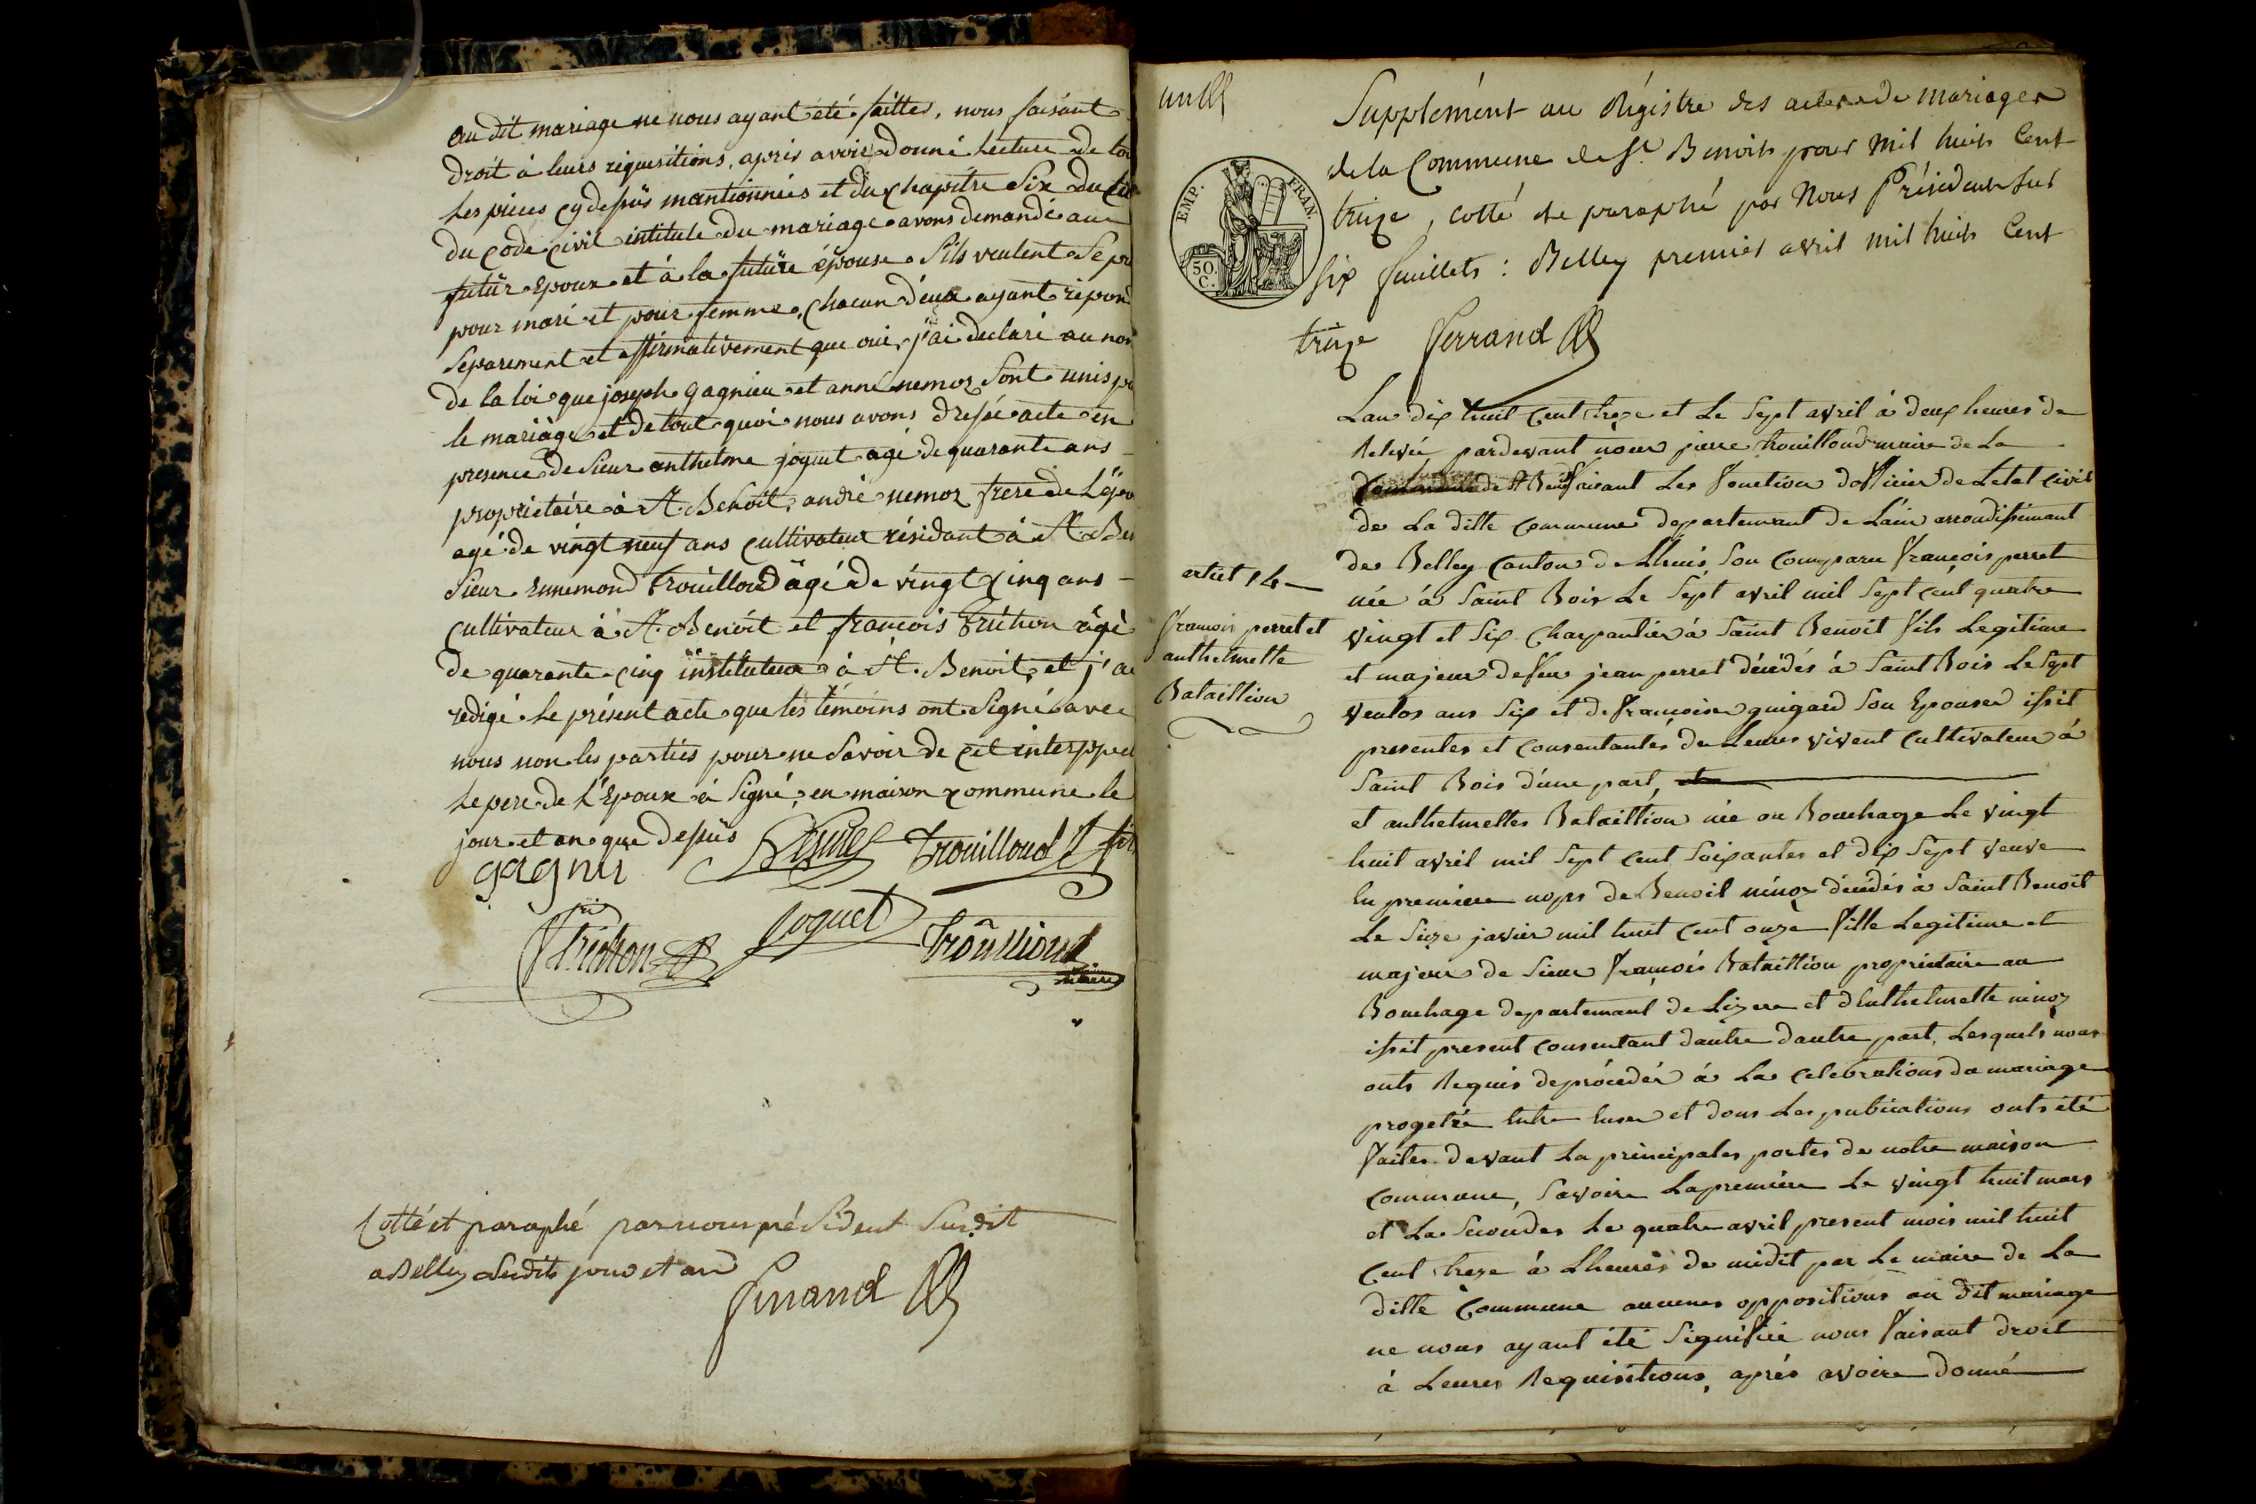 au dit mariage ne nous ayant été faittes, nous faisant
droit à leurs requisitions, apris avoir donné Lecture de
Les pieces cy depüs mantionnées et du chapitre Six du
du code civil intitule du mariage avons demandé au
futür Epoux et à la futüre épouse Sils veulent Se
pour mari et pour femme, chacun d'eux ayant repon
Separement et affirmativement que oui, j'ai declaré au nom
de la loi que joseph gagnieu et anne nemoz Sont unis
le mariage et de tout quoi nous avons dressé acte en
presence de Sieur anthelme joguet agé de quarante ans
propriétaire à St. Benoit, andré nemoz frere de L'épou
agé de vingt neuf ans Cultivateur résidant à St. Ben
Sieur Ennemond Trouilloud âgé de vingt Cinq ans
Cultivateur à St. Benoit et françois Fréchon âgé
de quarante Cinq instituteur à St. Benoit, et j'ai
redigé Le présent acte que les témoins ont Signé avec
nous non les parties pour ne Savoir de cet interppel
Le pere de l'Epoux à Signé, en maison commune le
jour et an que depüs
gagnier Trouilloud
fréchon Joguet Trouilloud
maire
Cotté et paraphé par nous président Susdit
a Belley Lesdits jour et an
Ferrand
un
Supplément au Régistre des actes de mariages
de la Commune de St. Benoit pour mil huit Cent
treize, cotté et paraphé par Nous Président Sur
six feuillets : Belley premier avril mil huit Cent
treize Ferrand
EMP. FRAN.
50. C.
Lan dix huit Cent treze et Le Sept avril à deux heures de
Relevée pardevant nous pierre trouilloud maire de La
Commune de St Benoit faisant Les Fonction dofficier de Letat Civil
de La ditte Commune departemant de Lain arrondissimant
de Belley Canton de Lhuis, Son Comparu François perret
née à Saint Bois Le Sept avril mil Sept Cent quatre
vingt et Six Charpantier à Saint Benoit fils Legitime
et majeur defeu jean perret décédés à Saint Bois Le Sept
ventos ans Six et de Françoise guigard Son Epouses issit
presentes et Consentantes de Leures vivent Cultivateur à
Saint Bois d'une part, et
et anthelmettes Bataillion née au Bouchage Le vingt
huit avril mil Sept Cent Soixantes et dix Sept veuve
En premiere nopes de Benoit ninoz décédés à Saint Benoit
Le Sieze javier mil huit Cent onze fille Legitime et
majeur de Sieur François Bataillion proprietaire au
Bouchage departemant de Lizere et dEnthelmette ninoz
issit present Consentant dautre dautre part, Lesquels nous
onts Requis de procédér à La Celebrations du mariage
progetée Entre Eux et dons Les publications onts été
Faites devant La principales portes de notre maison
Commune, Savoire La premiére Le vingt huit mars
et La Secondes Le quatre avril present mois mil huit
Cent treze à Lheures de midit par Le maire de La
ditte Commune aucunes oppositions au dit mariage
ne nous ayant été Signifiée nous Faisant droit
à Leures Requisitions, aprés avoire donné
artiet 14
François perret et
anthelmette
Bataillion